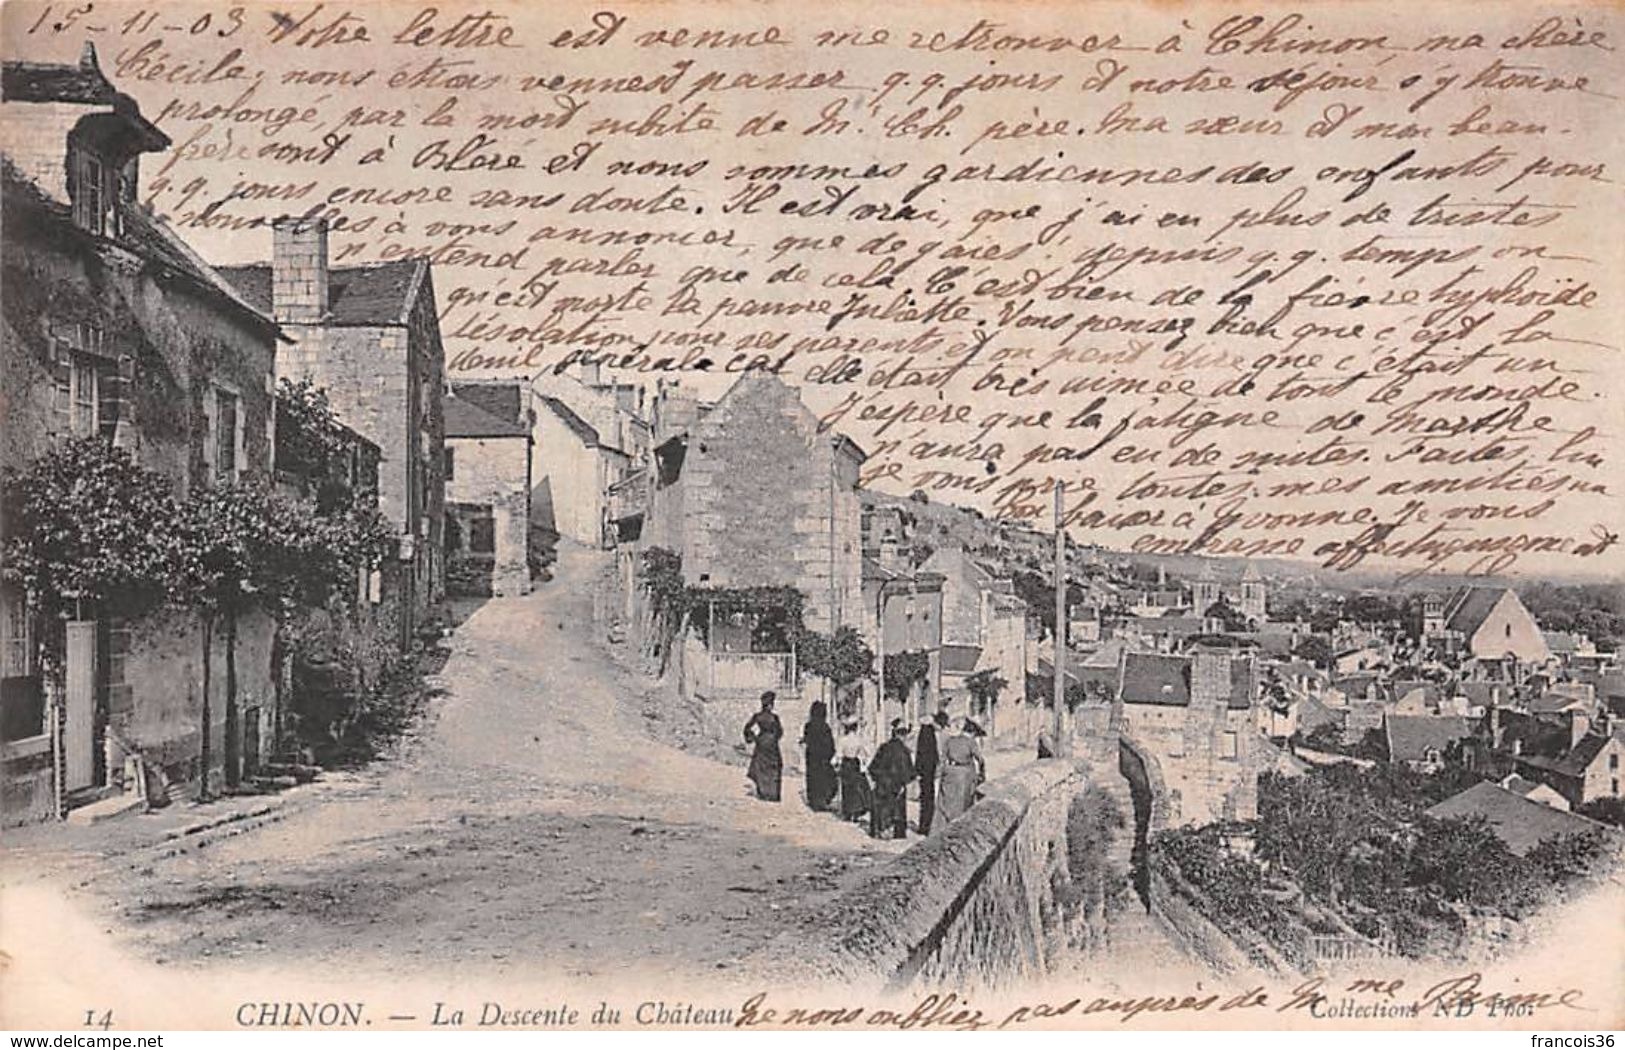 15-11-03 Votre lettre est venue me retrouver à Chinon, ma chère
Cécile, nous étions venues passer q.q. jours et notre séjour s'y trouve
prolongé, par la mort subite de Mr. Ch. père. Ma sœur et mon beau-
frère sont à Bléré et nous sommes gardiennes des enfants pour
q.q. jours encore sans doute. Il est vrai, que j'ai eu plus de tristes
nouvelles à vous annoncer, que de gaies! depuis q.q. temps on
n'entend parler que de cela. C'est bien de la fièvre typhoïde
qu'est morte la pauvre Juliette. Vous pensez bien que c'est la
désolation pour ses parents et on peut dire que c'était un
deuil général car elle était très aimée de tout le monde.
J'espère que la fatigue de Marthe
n'aura pas eu de suites. Faites, lui
je vous prie toutes mes amitiés, un
bon baiser à Yvonne. Je vous
embrasse affectueusement
14 CHINON. — La Descente du Château
ne nous oubliez pas auprès de Mme
Collections ND Phot
francois36
www.delcampe.net